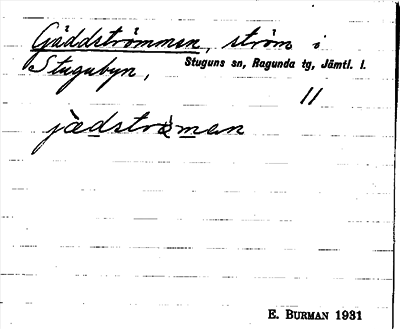 Gäddströmmen, ström i
Stugubyn, Stuguns sn, Ragunda tg, Jämtl. l.
11
E. BURMAN 1931